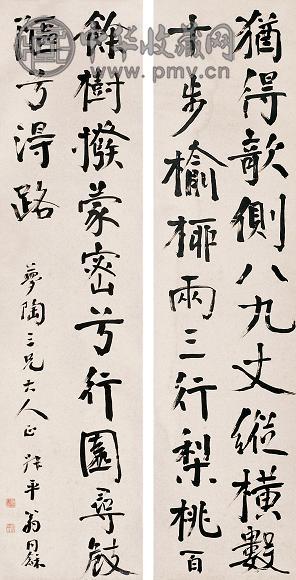 中华收藏网
www.pmv.cn
猶得欹側八九丈縱橫數
十步榆柳兩三行梨桃百
餘樹撥蒙密兮行園尋敧
兮得路
夢陶三兄大人正 叔平翁同龢